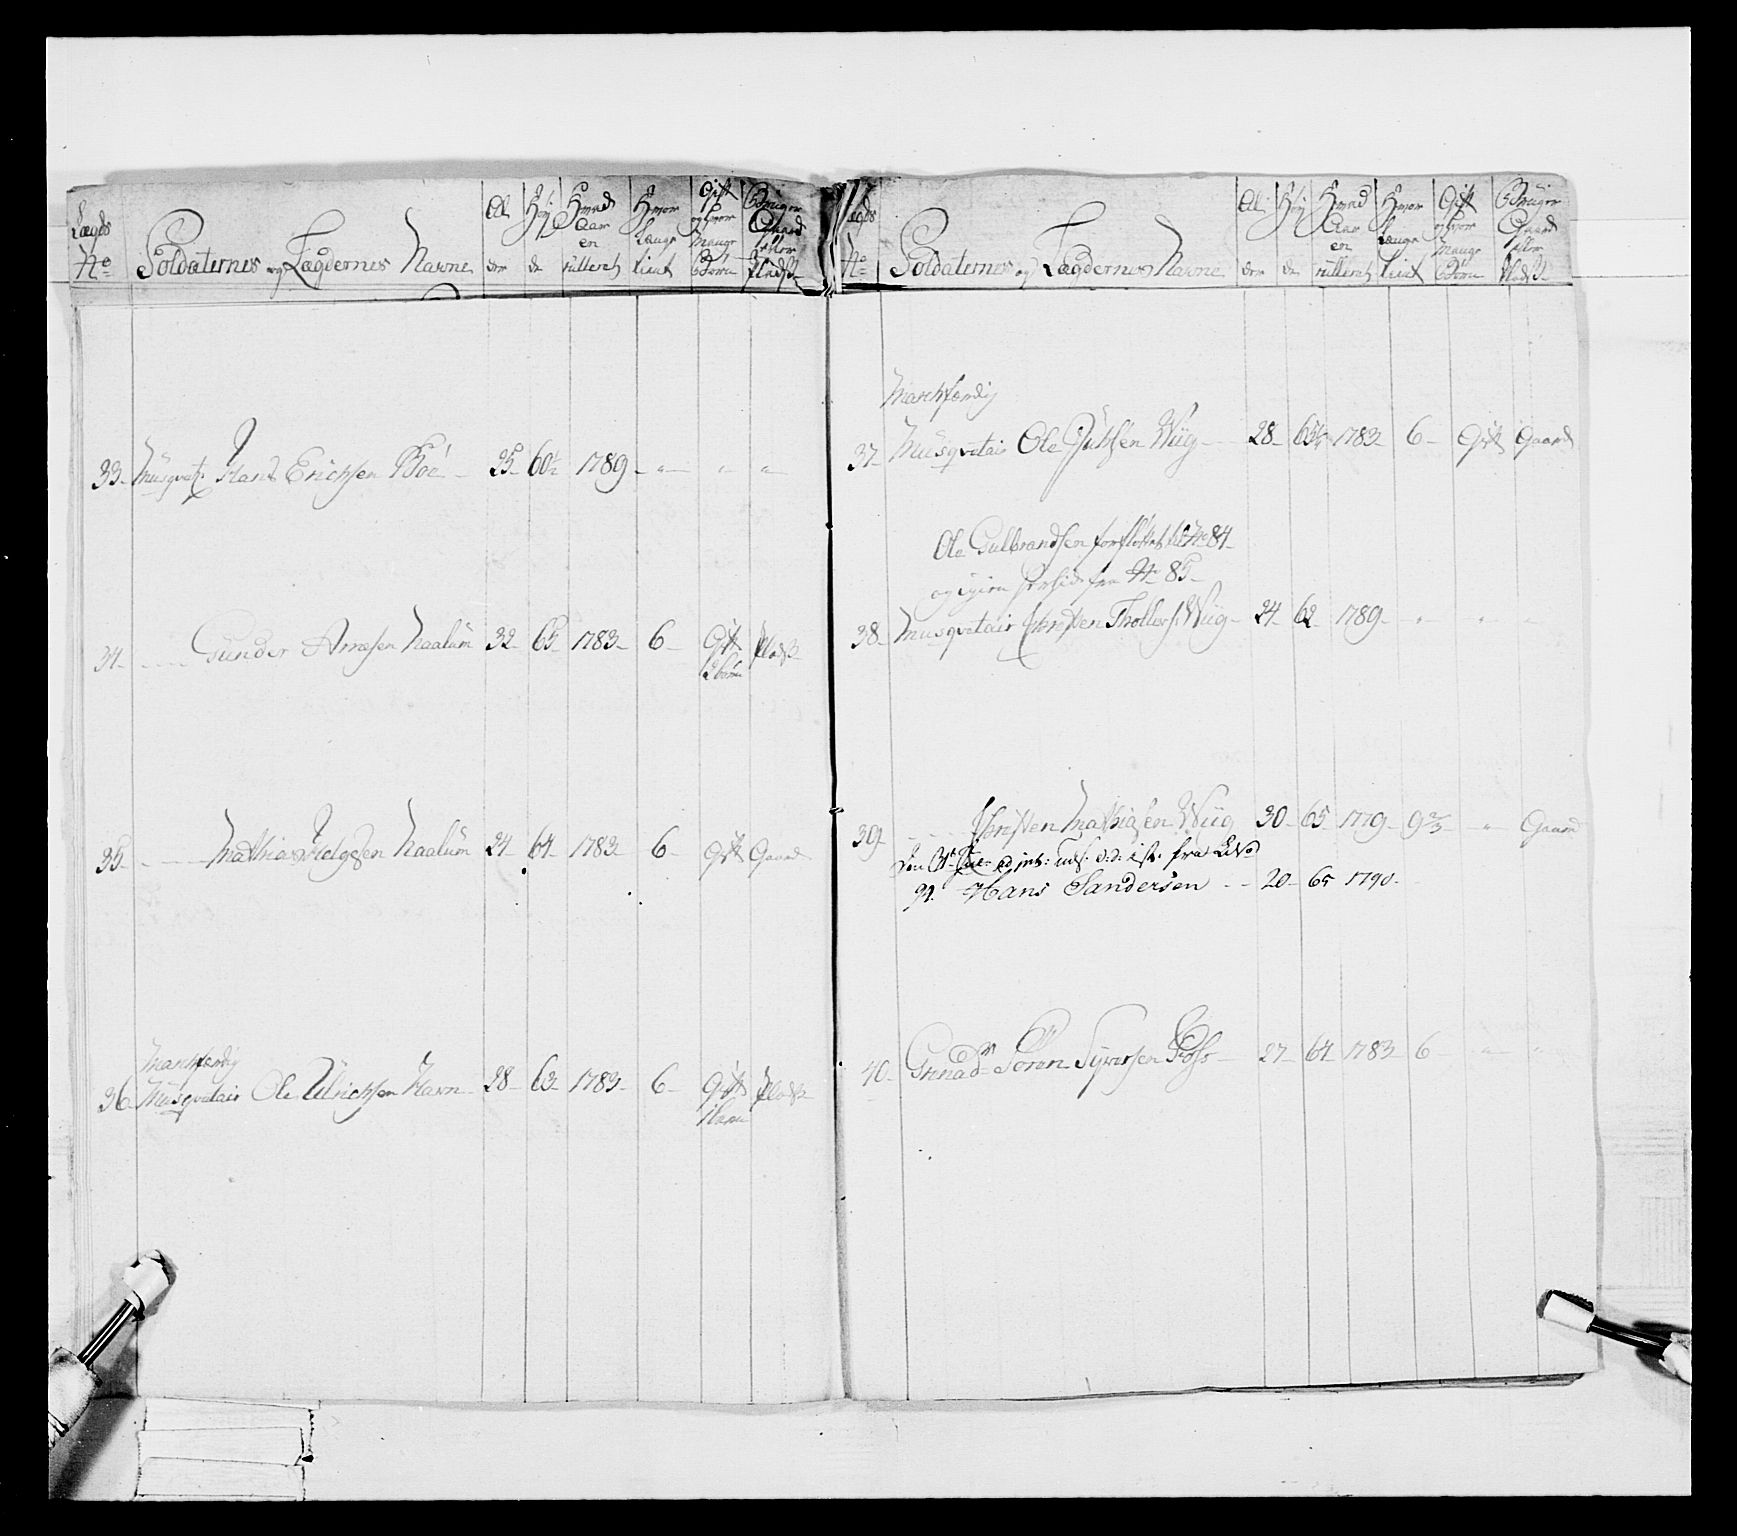 Lægds No Soldaternes og Lægdernes Navne Al der Høy de Hvad Aar en rulleret Hvor Længe tient Gift og hvor mange Børn Bruger Gaard eller Pladß
33 Musqvet: Hans Erichsen Böe 25 60½ 1789 " " "
34 Gunder Arnesen Naalum 32 65 1783 6 Gift Pladß
2 börn
35 Mathias Helgesen Naalum 24 64 1783 6 Gift Gaard
Marchfærdig
36 Musqvetair Ole Ulrichsen Havn 28 63 1783 6 Gift Pladß
1 barn
Lægds No Soldaternes og Lægdernes Navne Al der Høy de Hvad Aar en rulleret Hvor Længe tient Gift og hvor mange Børn Bruger Gaard eller Pladß
Marchfærdig
37 Musqvetair Ole Wiig 28 1783 6 Gift Gaard
Ole Gulbrandsen forflöttet til No 84
og igien fra No 85
38 Musqvetair Christen Wiig 24 62 1789 " " "
39 Christen Mathiasen Wiig 30 65 1779 " Gaard
fra
Hans Sandersen 20 65 1790
40 Sören Foss 27 64 1783 6 " "